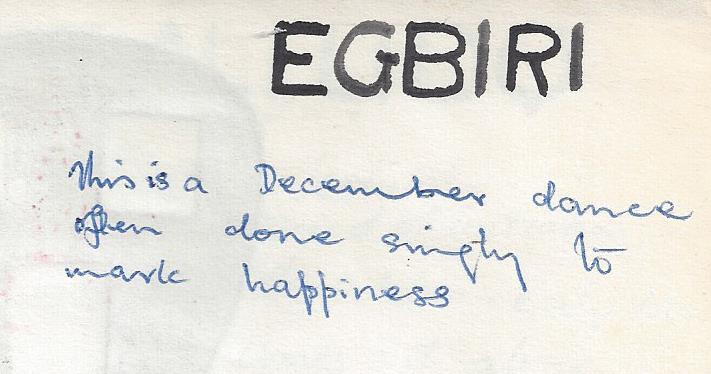 EGBIRI
This is a December dance
often done singly to
mark happiness